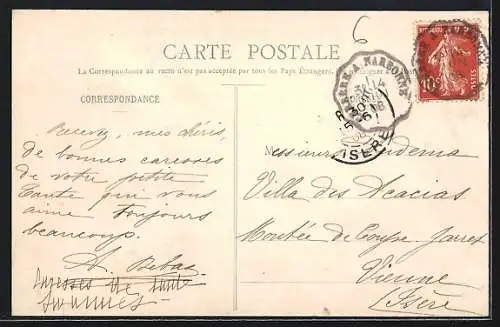 6
CARTE POSTALE
La Correspondance au recto n'est pas acceptée par tous les Pays Étrangers.
CORRESPONDANCE
Recevez, mes chéris,
de bonnes caresses
de votre petite
Tante qui vous
aime toujours
beaucoup.
A.
de
Messieurs
Villa des Acacias
Montée de Coupe-Jarret
Vienne
Isère
NARBONNE
ISÈRE
10
POSTES